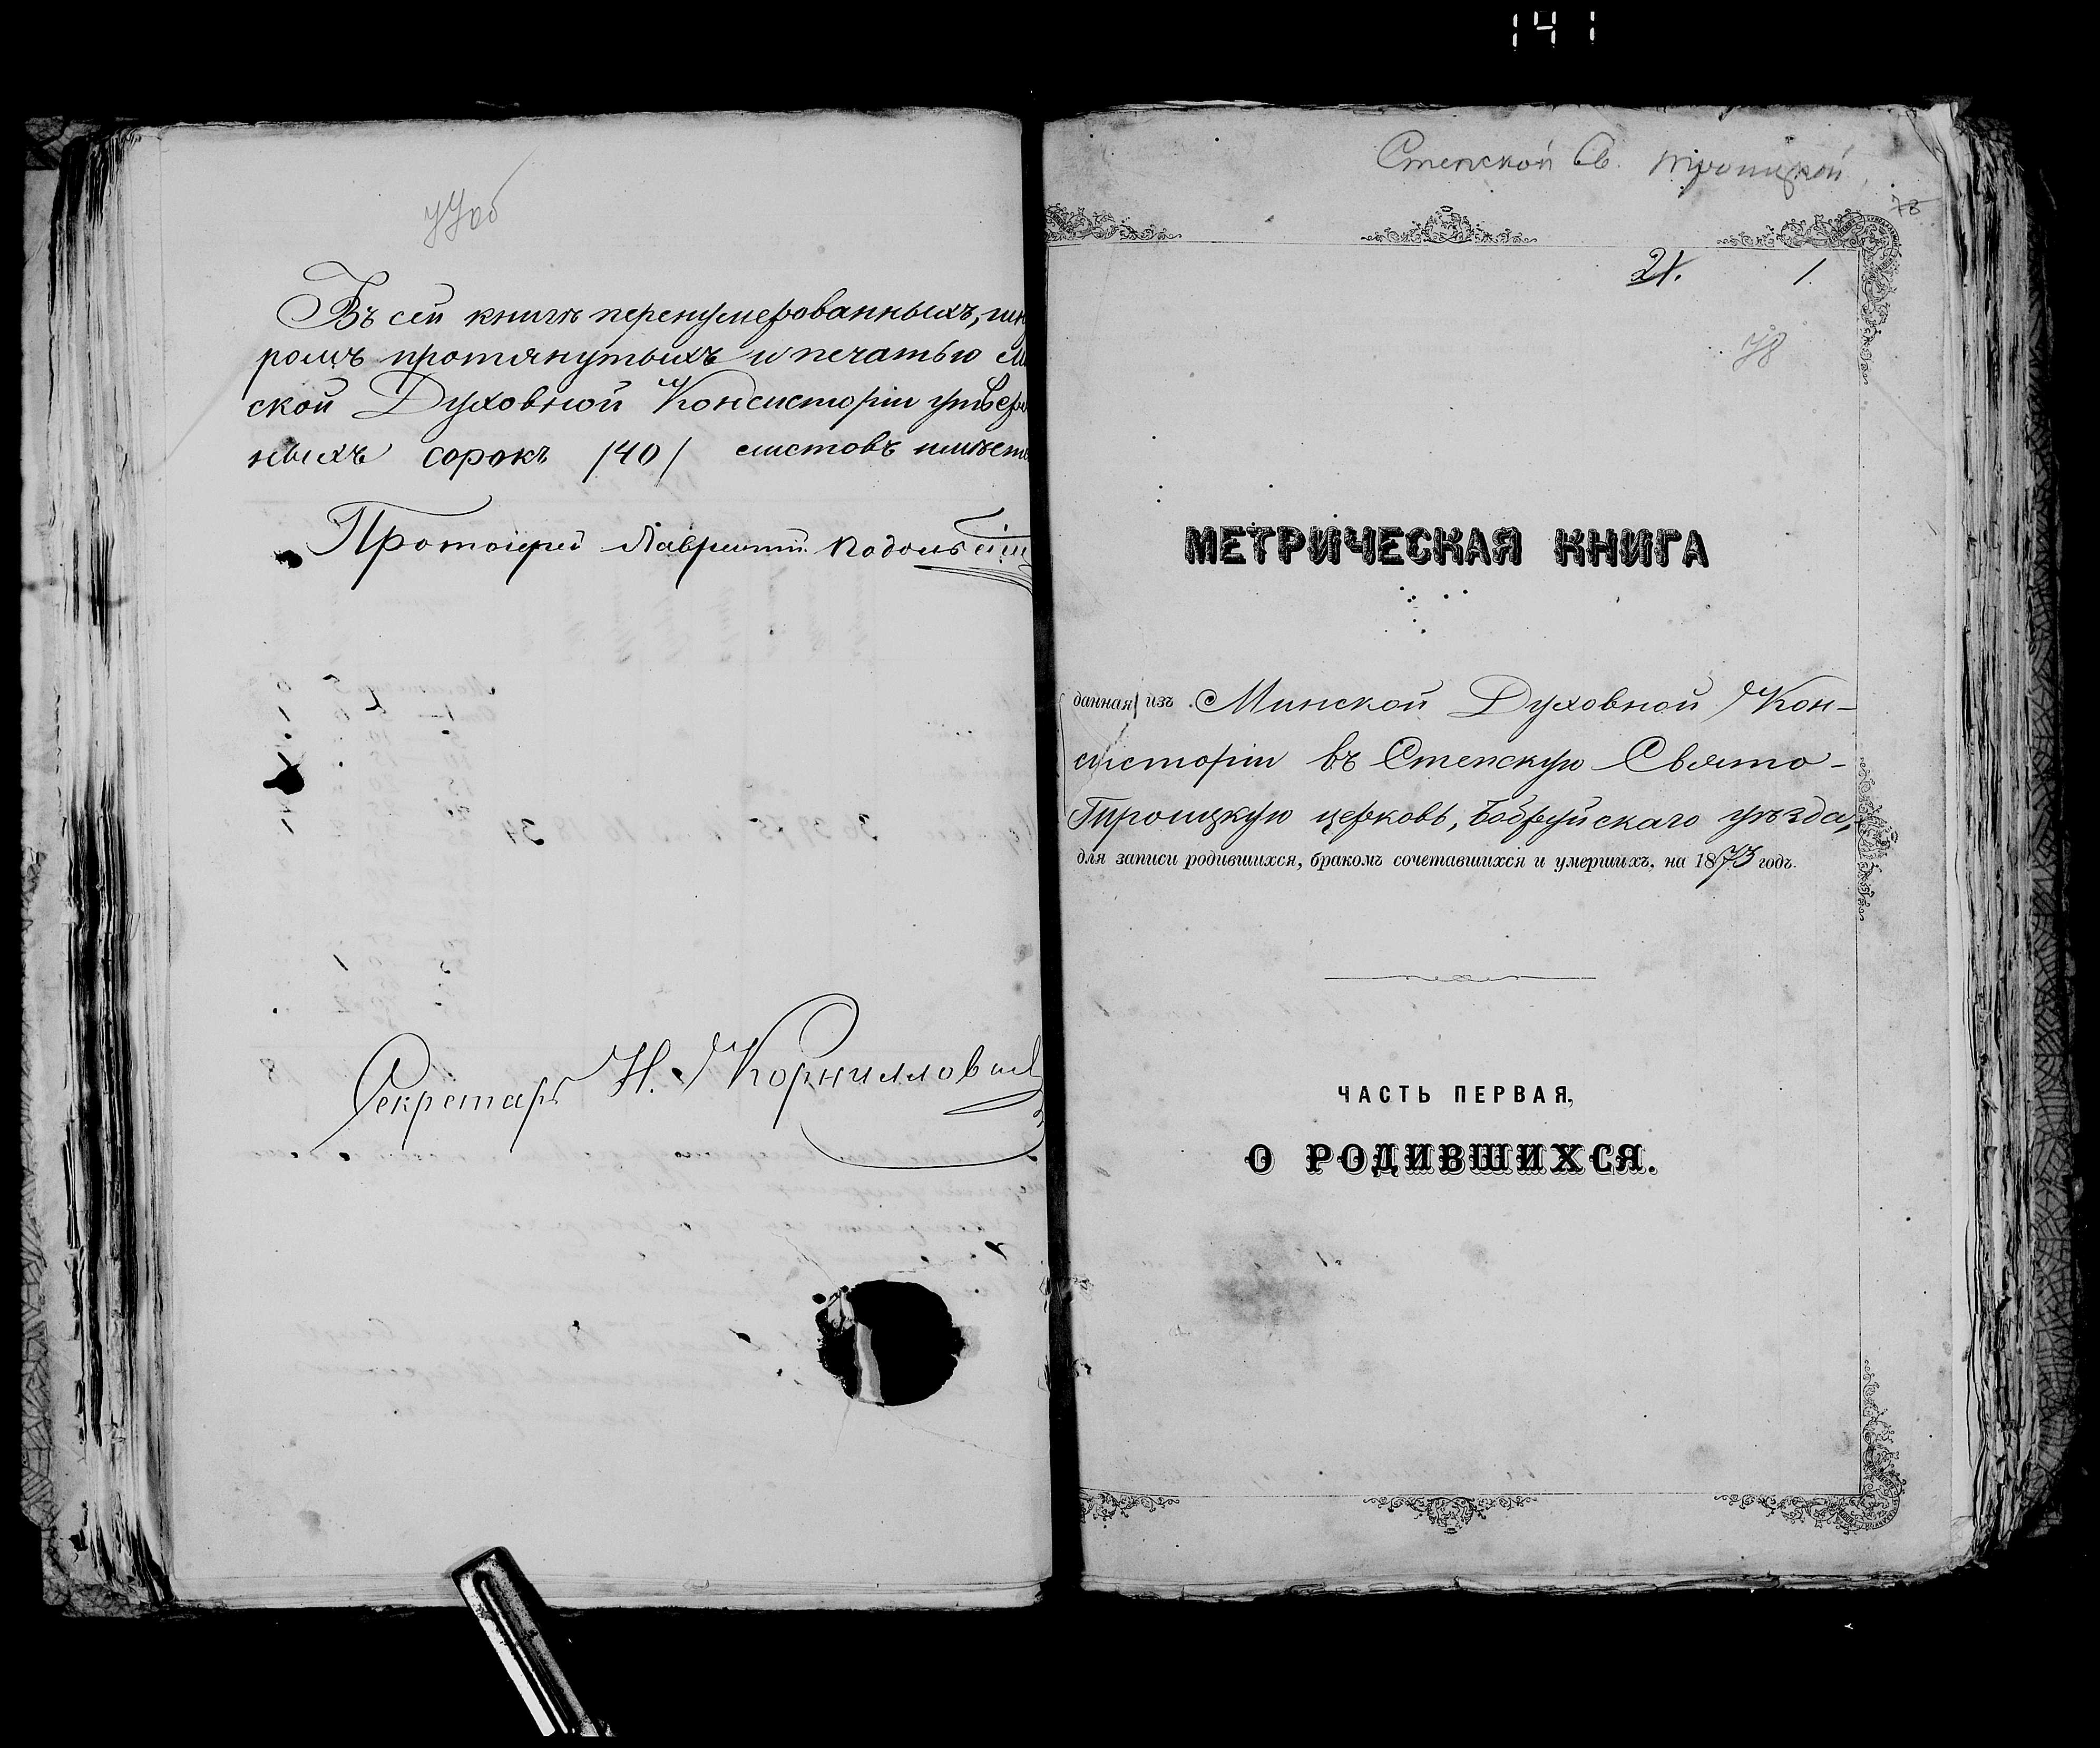 141
77об
Въ сей книгѣ перенумерованныхъ, шн
ромъ протянутыхъ и печатью Ми
ской Духовной Консисторіи утверж
ныхъ сорокъ /40/ листовъ имѣет
Протоіерей Лаврентій Подольскій
Секретарь Н. Корниллович
Степской Св. Троицкой
78
21. 1.
78
МЕТРИЧЕСКАЯ КНИГА
данная изъ Минской Духовной Кон-
систоріи въ Степскую Свято-
Троицкую церковь, Бобруйскаго уѣзда,
для записи родившихся, бракомъ сочетавшихся и умершихъ, на 1873 годъ.
ЧАСТЬ ПЕРВАЯ,
О РОДИВШИХСЯ.